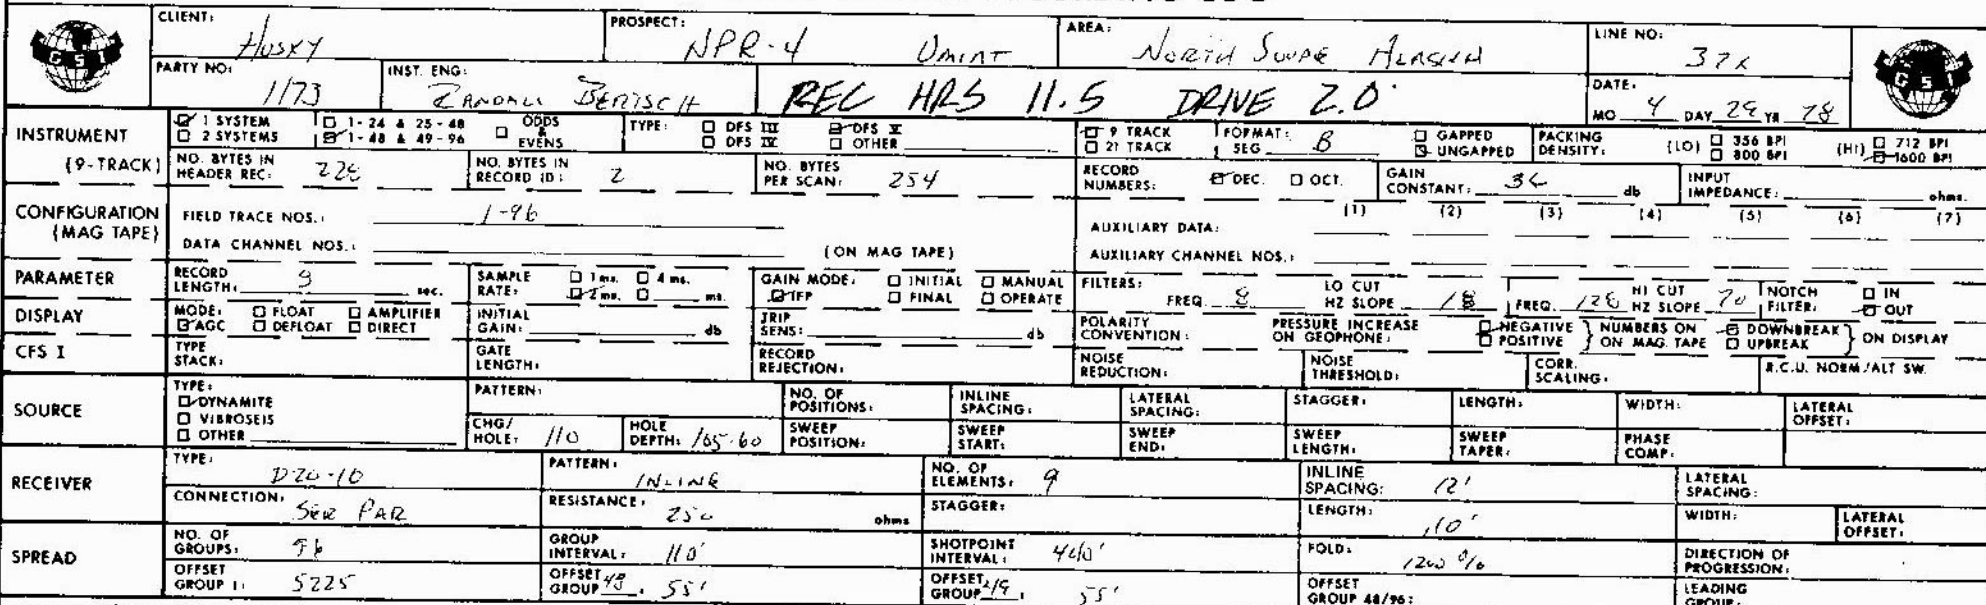 CLIENT: Husky PROSPECT: NPR-4 Umiat AREA: North Slope Alaska LINE NO: 37X
GSI
PARTY NO: 1173 INST. ENG: Randall Bertsch REC HRS 11.5 DRIVE 2.0 DATE: MO 4 DAY 29 YR 78
GSI
INSTRUMENT (9-TRACK)
1 SYSTEM 1-24 & 25-48 ODDS & EVENS TYPE: DFS III DFS V 9 TRACK FORMAT: SEG B GAPPED PACKING DENSITY: (LO) 356 BPI (HI) 712 BPI
2 SYSTEMS 1-48 & 49-96 DFS IV OTHER 21 TRACK UNGAPPED 800 BPI 1600 BPI
NO. BYTES IN HEADER REC: 228 NO. BYTES IN RECORD ID: 2 NO. BYTES PER SCAN: 254 RECORD NUMBERS: DEC. OCT. GAIN CONSTANT: 36 db INPUT IMPEDANCE: ohms.
CONFIGURATION (MAG TAPE)
FIELD TRACE NOS.: 1-96 AUXILIARY DATA: (1) (2) (3) (4) (5) (6) (7)
DATA CHANNEL NOS.: (ON MAG TAPE) AUXILIARY CHANNEL NOS.:
PARAMETER RECORD LENGTH: 9 sec. SAMPLE RATE: 1 ms. 4 ms. 2 ms. ms. GAIN MODE: INITIAL MANUAL IFP FINAL OPERATE FILTERS: FREQ. 8 LO CUT HZ SLOPE 18 FREQ. 128 HI CUT HZ SLOPE 70 NOTCH FILTER: IN OUT
DISPLAY MODE: FLOAT AMPLIFIER AGC DEFLOAT DIRECT INITIAL GAIN: db TRIP SENS: db POLARITY CONVENTION: PRESSURE INCREASE ON GEOPHONE: NEGATIVE POSITIVE } NUMBERS ON ON MAG. TAPE DOWNBREAK UPBREAK } ON DISPLAY
CFS I TYPE STACK: GATE LENGTH: RECORD REJECTION: NOISE REDUCTION: NOISE THRESHOLD: CORR. SCALING: R.C.U. NORM/ALT SW.
SOURCE TYPE: DYNAMITE VIBROSEIS OTHER
PATTERN: NO. OF POSITIONS: INLINE SPACING: LATERAL SPACING: STAGGER: LENGTH: WIDTH: LATERAL OFFSET:
CHG/HOLE: 110 HOLE DEPTH: 165-60 SWEEP POSITION: SWEEP START: SWEEP END: SWEEP LENGTH: SWEEP TAPER: PHASE COMP:
RECEIVER TYPE: D20-10 PATTERN: INLINE NO. OF ELEMENTS: 9 INLINE SPACING: 12' LATERAL SPACING:
CONNECTION: SER PAR RESISTANCE: 250 ohms STAGGER: LENGTH: 110' WIDTH: LATERAL OFFSET:
SPREAD NO. OF GROUPS: 96 GROUP INTERVAL: 110' SHOTPOINT INTERVAL: 440' FOLD: 1200 % DIRECTION OF PROGRESSION:
OFFSET GROUP 1: 5225 OFFSET GROUP 48: 55' OFFSET GROUP 49: 55' OFFSET GROUP 48/96: LEADING GROUP: